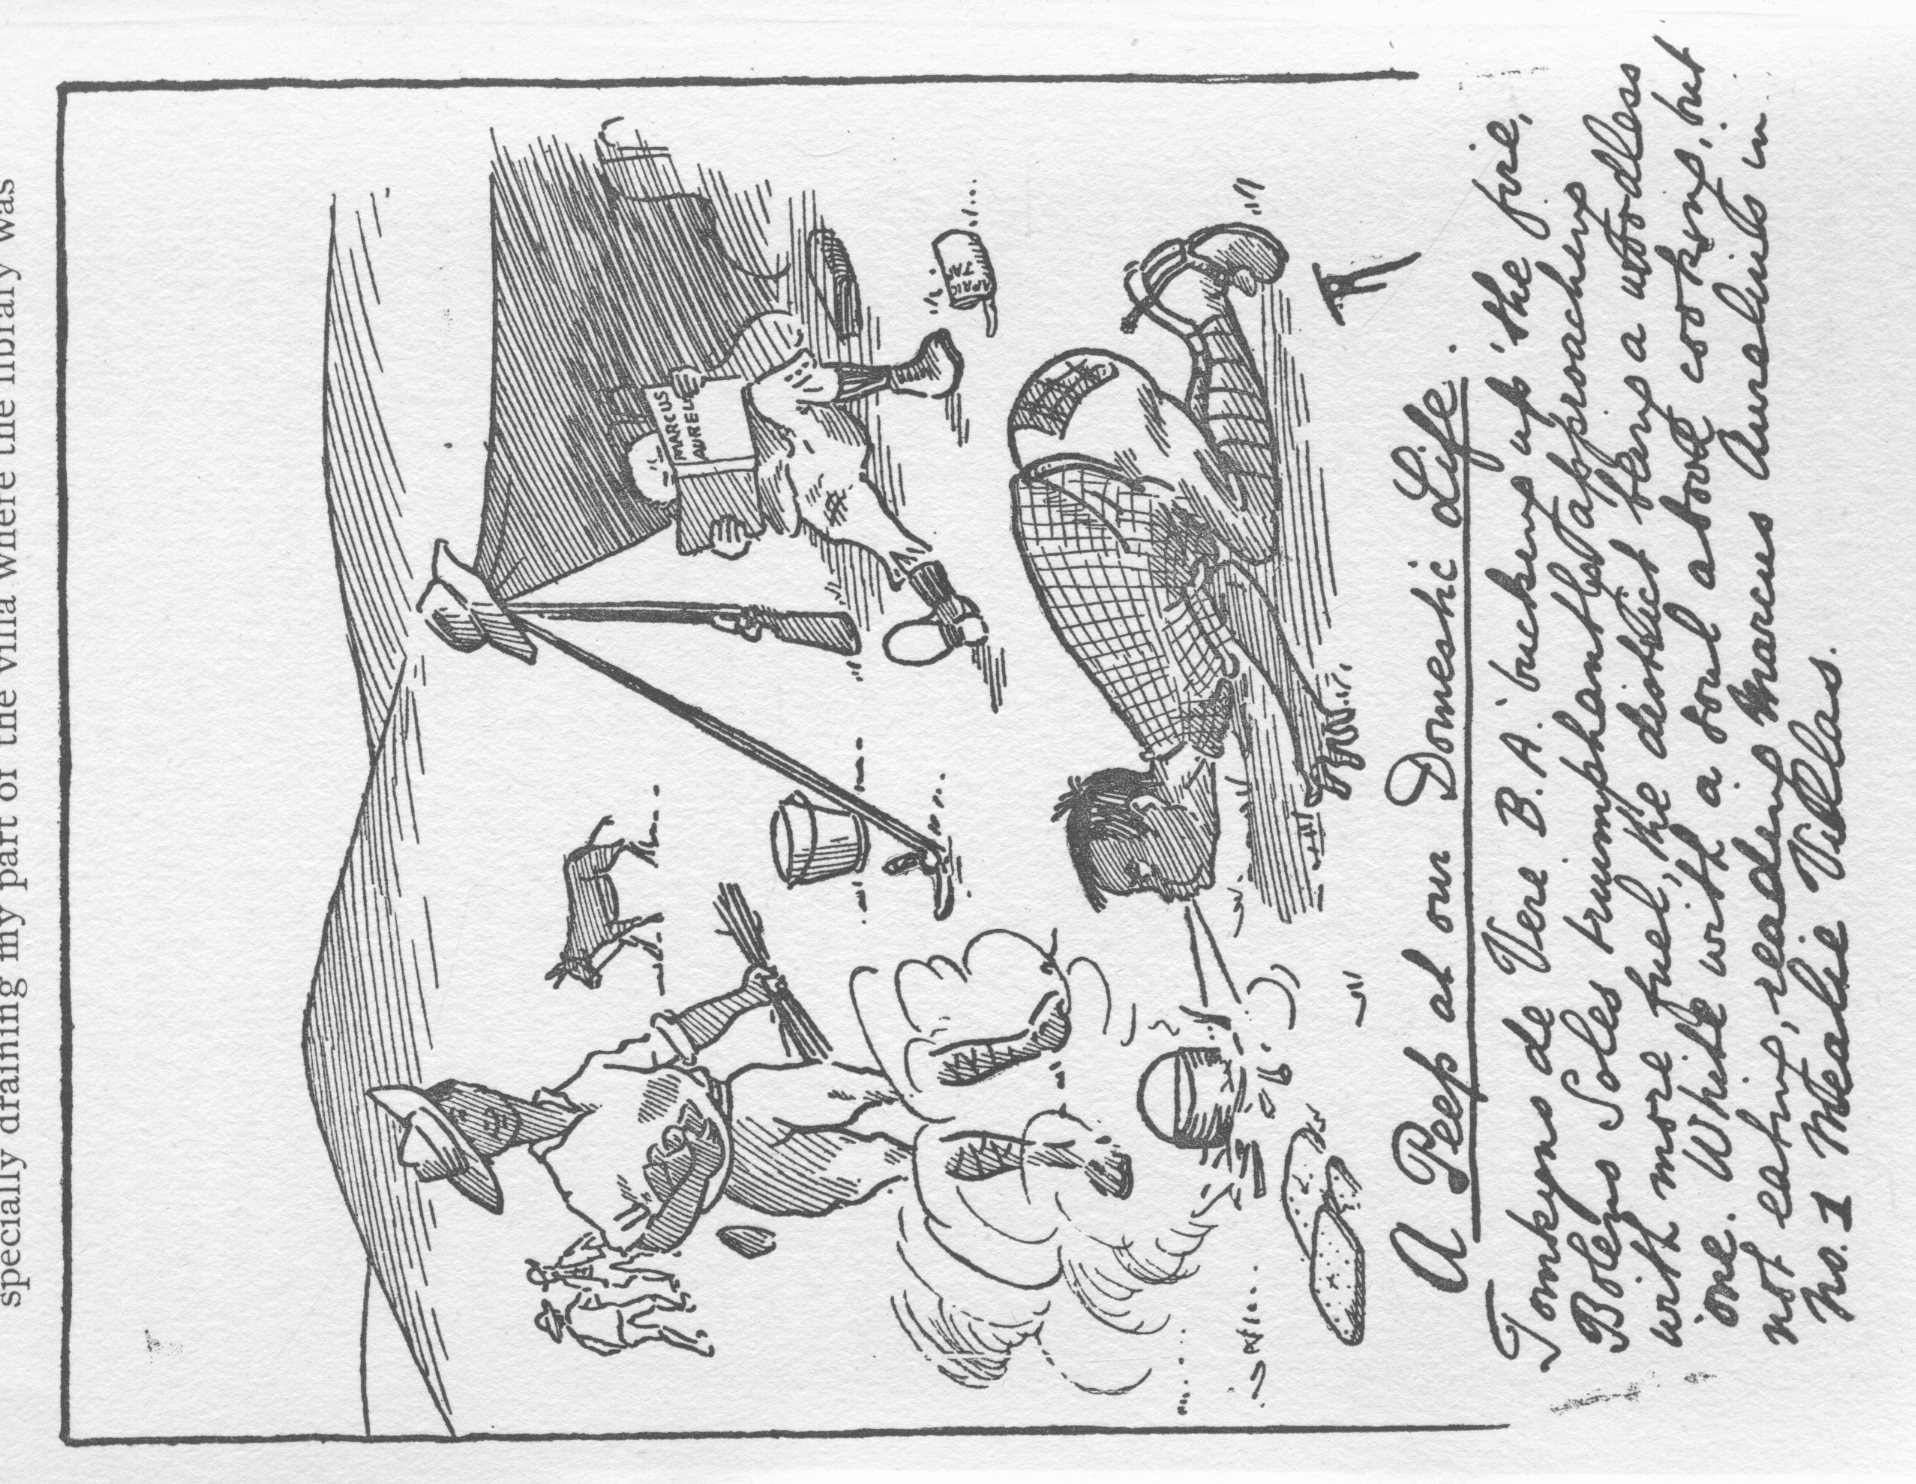 specially draining my part of the villa where the library was
MARCUS
AUREL
APRIC
JAP
A Peep at our Domestic Life.
Tomkyns de Vere B.A. 'bucking up' the fire,
Boleyns Soles triumphantly approaching
with more fuel, the district being a woodless
one. White with a soul above cooking, but
not eating, reading Marcus Aurelius in
No. 1 Mealie Villas.